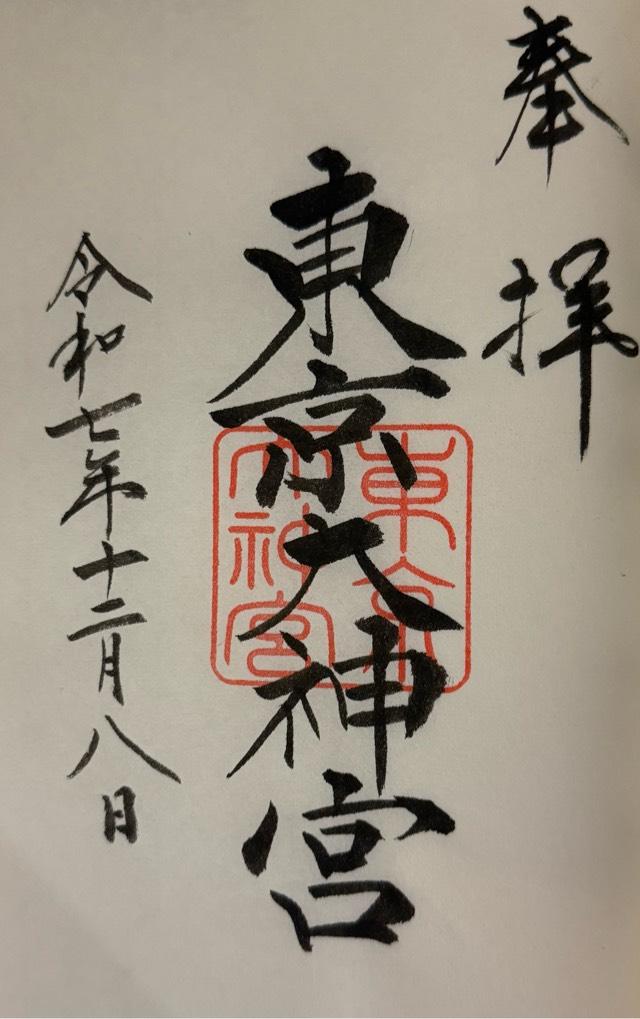 奉拝
東京大神宮
東京
大神宮
令和七年十二月八日